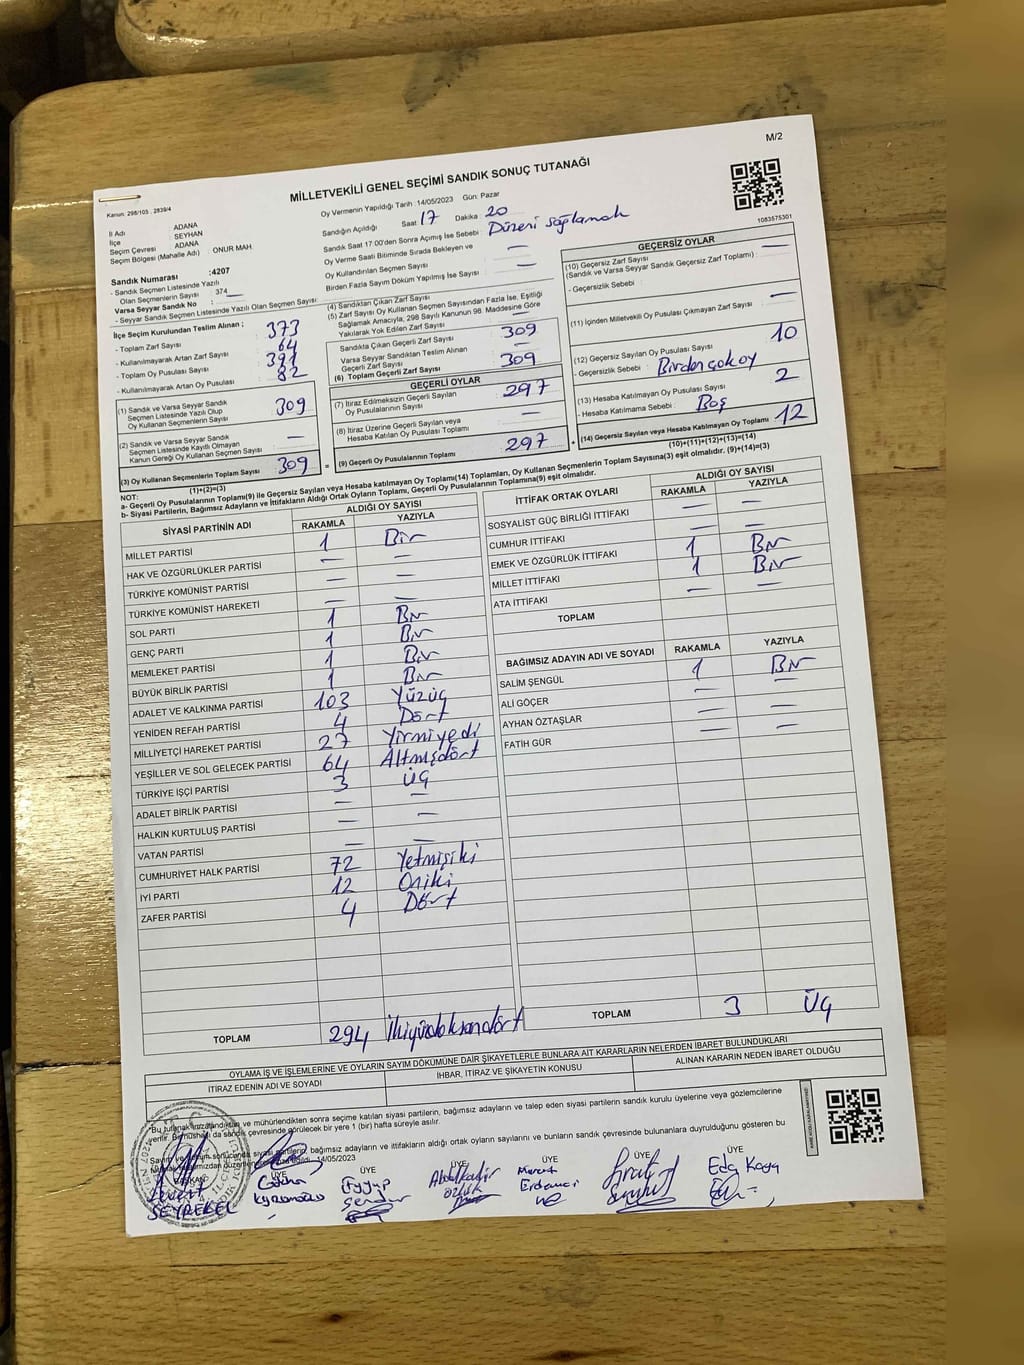 M/2
MİLLETVEKİLİ GENEL SEÇİMİ SANDIK SONUÇ TUTANAĞI
Kanun: 298/105, 2839/4
Oy Vermenin Yapıldığı Tarih :14/05/2023 Gün: Pazar
1083575301
İl Adı ADANA
İlçe SEYHAN
Seçim Çevresi : ADANA
Seçim Bölgesi (Mahalle Adı) ONUR MAH
Sandık Numarası :4207
- Sandık Seçmen Listesinde Yazılı
Olan Seçmenlerin Sayısı 374
Varsa Seyyar Sandık No :
- Seyyar Sandık Seçmen Listesinde Yazılı Olan Seçmen Sayısı:
Sandığın Açıldığı Saat 17 Dakika : 20
Sandık Saat 17:00'den Sonra Açılmış İse Sebebi : Düzeni Sağlamak
Oy Verme Saati Bitiminde Sırada Bekleyen ve
Oy Kullandırılan Seçmen Sayısı : —
Birden Fazla Sayım Döküm Yapılmış İse Sayısı : —
İlçe Seçim Kurulundan Teslim Alınan ;
- Toplam Zarf Sayısı : 373
- Kullanılmayarak Artan Zarf Sayısı : 64
- Toplam Oy Pusulası Sayısı : 391
- Kullanılmayarak Artan Oy Pusulası : 82
(1) Sandık ve Varsa Seyyar Sandık
Seçmen Listesinde Yazılı Olup
Oy Kullanan Seçmenlerin Sayısı 309
(2) Sandık ve Varsa Seyyar Sandık
Seçmen Listesinde Kayıtlı Olmayan
Kanun Gereği Oy Kullanan Seçmen Sayısı —
(3) Oy Kullanan Seçmenlerin Toplam Sayısı 309
(1)+(2)=(3)
(4) Sandıktan Çıkan Zarf Sayısı :
(5) Zarf Sayısı Oy Kullanan Seçmen Sayısından Fazla İse, Eşitliği
Sağlamak Amacıyla, 298 Sayılı Kanunun 98. Maddesine Göre
Yakılarak Yok Edilen Zarf Sayısı : —
Sandıkta Çıkan Geçerli Zarf Sayısı 309
Varsa Seyyar Sandıktan Teslim Alınan
Geçerli Zarf Sayısı : —
(6) Toplam Geçerli Zarf Sayısı 309
GEÇERLİ OYLAR
(7) İtiraz Edilmeksizin Geçerli Sayılan
Oy Pusulalarının Sayısı : 297
(8) İtiraz Üzerine Geçerli Sayılan veya
Hesaba Katılan Oy Pusulası Toplamı : —
(9) Geçerli Oy Pusulalarının Toplamı : 297
GEÇERSİZ OYLAR
(10) Geçersiz Zarf Sayısı
(Sandık ve Varsa Seyyar Sandık Geçersiz Zarf Toplamı) : —
- Geçersizlik Sebebi :
(11) İçinden Milletvekili Oy Pusulası Çıkmayan Zarf Sayısı : —
(12) Geçersiz Sayılan Oy Pusulası Sayısı : 10
- Geçersizlik Sebebi : Birden çok oy
(13) Hesaba Katılmayan Oy Pusulası Sayısı : 2
- Hesaba Katılmama Sebebi : Boş
(14) Geçersiz Sayılan veya Hesaba Katılmayan Oy Toplamı : 12
(10)+(11)+(12)+(13)=(14)
NOT:
a- Geçerli Oy Pusulalarının Toplamı(9) ile Geçersiz Sayılan veya Hesaba katılmayan Oy Toplamı(14) Toplamları, Oy Kullanan Seçmenlerin Toplam Sayısına(3) eşit olmalıdır. (9)+(14)=(3)
b- Siyasi Partilerin, Bağımsız Adayların ve İttifakların Aldığı Ortak Oyların Toplamı, Geçerli Oy Pusulalarının Toplamına(9) eşit olmalıdır.
SİYASİ PARTİNİN ADI ALDIĞI OY SAYISI
RAKAMLA YAZIYLA
MİLLET PARTİSİ 1 Bir
HAK VE ÖZGÜRLÜKLER PARTİSİ — —
TÜRKİYE KOMÜNİST PARTİSİ — —
TÜRKİYE KOMÜNİST HAREKETİ — —
SOL PARTİ 1 Bir
GENÇ PARTİ 1 Bir
MEMLEKET PARTİSİ 1 Bir
BÜYÜK BİRLİK PARTİSİ 1 Bir
ADALET VE KALKINMA PARTİSİ 103 Yüzüç
YENİDEN REFAH PARTİSİ 4 Dört
MİLLİYETÇİ HAREKET PARTİSİ 27 Yirmiyedi
YEŞİLLER VE SOL GELECEK PARTİSİ 64 Altmışdört
TÜRKİYE İŞÇİ PARTİSİ 3 Üç
ADALET BİRLİK PARTİSİ — —
HALKIN KURTULUŞ PARTİSİ — —
VATAN PARTİSİ — —
CUMHURİYET HALK PARTİSİ 72 Yetmişiki
İYİ PARTİ 12 Oniki
ZAFER PARTİSİ 4 Dört
TOPLAM 294 İkiyüzdoksandört
İTTİFAK ORTAK OYLARI ALDIĞI OY SAYISI
RAKAMLA YAZIYLA
SOSYALİST GÜÇ BİRLİĞİ İTTİFAKI — —
CUMHUR İTTİFAKI — —
EMEK VE ÖZGÜRLÜK İTTİFAKI 1 Bir
MİLLET İTTİFAKI 1 Bir
ATA İTTİFAKI — —
TOPLAM
BAĞIMSIZ ADAYIN ADI VE SOYADI RAKAMLA YAZIYLA
SALİM ŞENGÜL 1 Bir
ALİ GÖÇER — —
AYHAN ÖZTAŞLAR — —
FATİH GÜR — —
TOPLAM 3 Üç
OYLAMA İŞ VE İŞLEMLERİNE VE OYLARIN SAYIM DÖKÜMÜNE DAİR ŞİKAYETLERLE BUNLARA AİT KARARLARIN NELERDEN İBARET BULUNDUKLARI
İTİRAZ EDENİN ADI VE SOYADI İHBAR, İTİRAZ VE ŞİKAYETİN KONUSU ALINAN KARARIN NEDEN İBARET OLDUĞU
Bu tutanak imzalandıktan ve mühürlendikten sonra seçime katılan siyasi partilerin, bağımsız adayların ve talep eden siyasi partilerin sandık kurulu üyelerine veya gözlemcilerine
verilir. Bu nüsha da sandık çevresinde görülecek bir yere 1 (bir) hafta süreyle asılır.
siyasi partilerin, bağımsız adayların ve ittifakların aldığı ortak oyların sayılarını ve bunların sandık çevresinde bulunanlara duyrulduğunu gösteren bu
14/05/2023
BAŞKAN ÜYE ÜYE ÜYE ÜYE ÜYE ÜYE
SEYREKEL Eyyup Abdulkadir Erdemci Eda Kaya